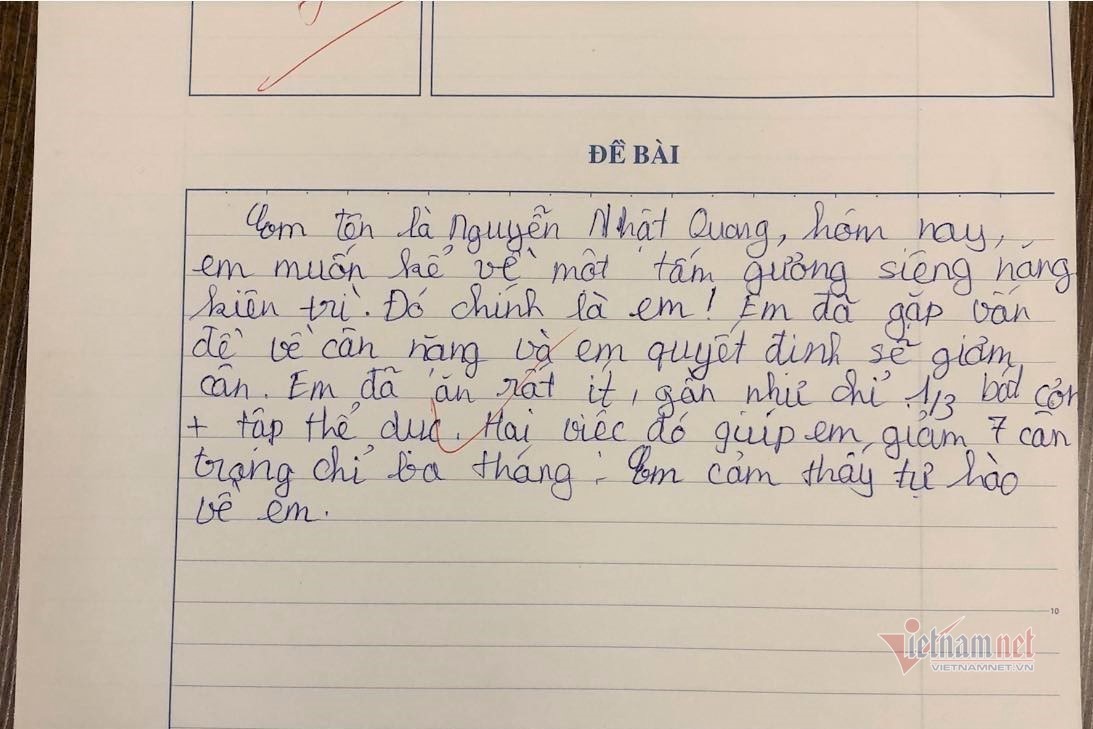 ĐỀ BÀI
Em tên là Nguyễn Nhật Quang, hôm nay,
em muốn kể về một tấm gương siêng năng
kiên trì. Đó chính là em! Em đã gặp vấn
đề về cân nặng và em quyết định sẽ giảm
cân. Em đã ăn rất ít, gần như chỉ 1/3 bát cơm
+ tập thể dục. Hai việc đó giúp em giảm 7 cân
trong chỉ ba tháng. Em cảm thấy tự hào
về em.
10
Vietnamnet
VIETNAMNET.VN